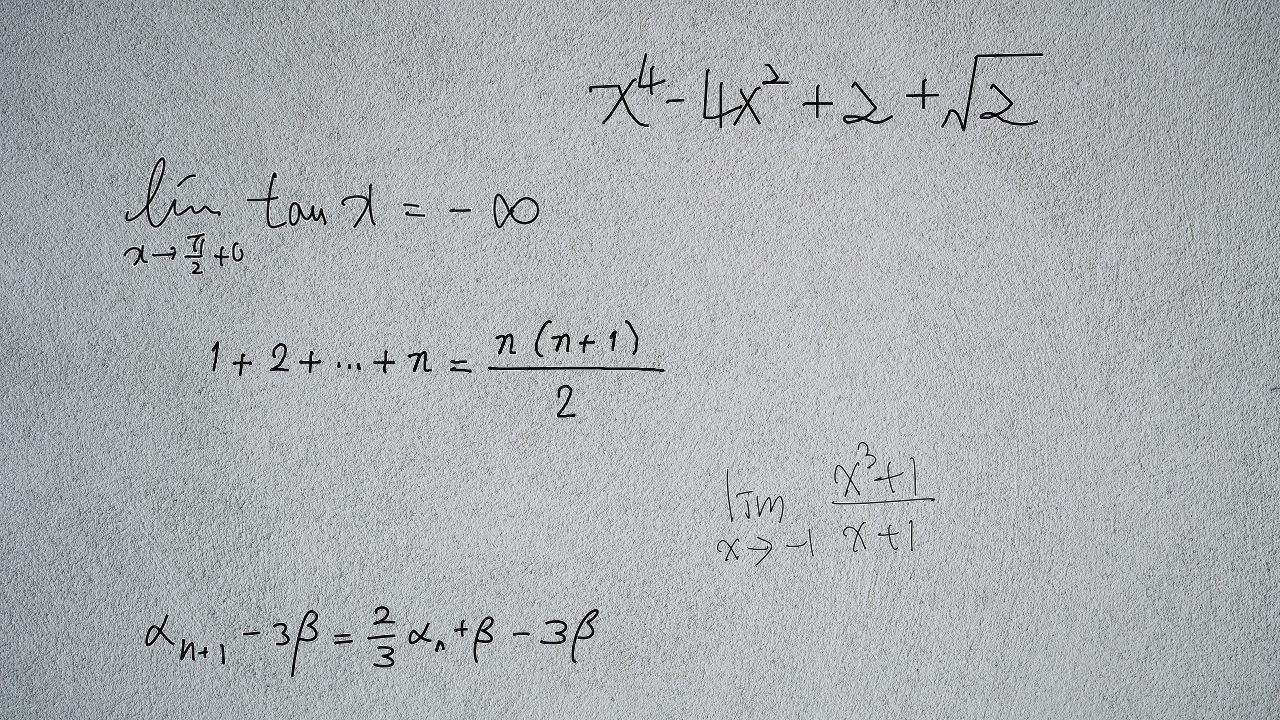 x⁴ - 4x² + 2 + √2
lim x→π/2+0 tan x = - ∞
1 + 2 + ... + n = n (n + 1) / 2
lim x→-1 x³+1 / x+1
αₙ₊₁ - 3β = 2/3 αₙ + β - 3β